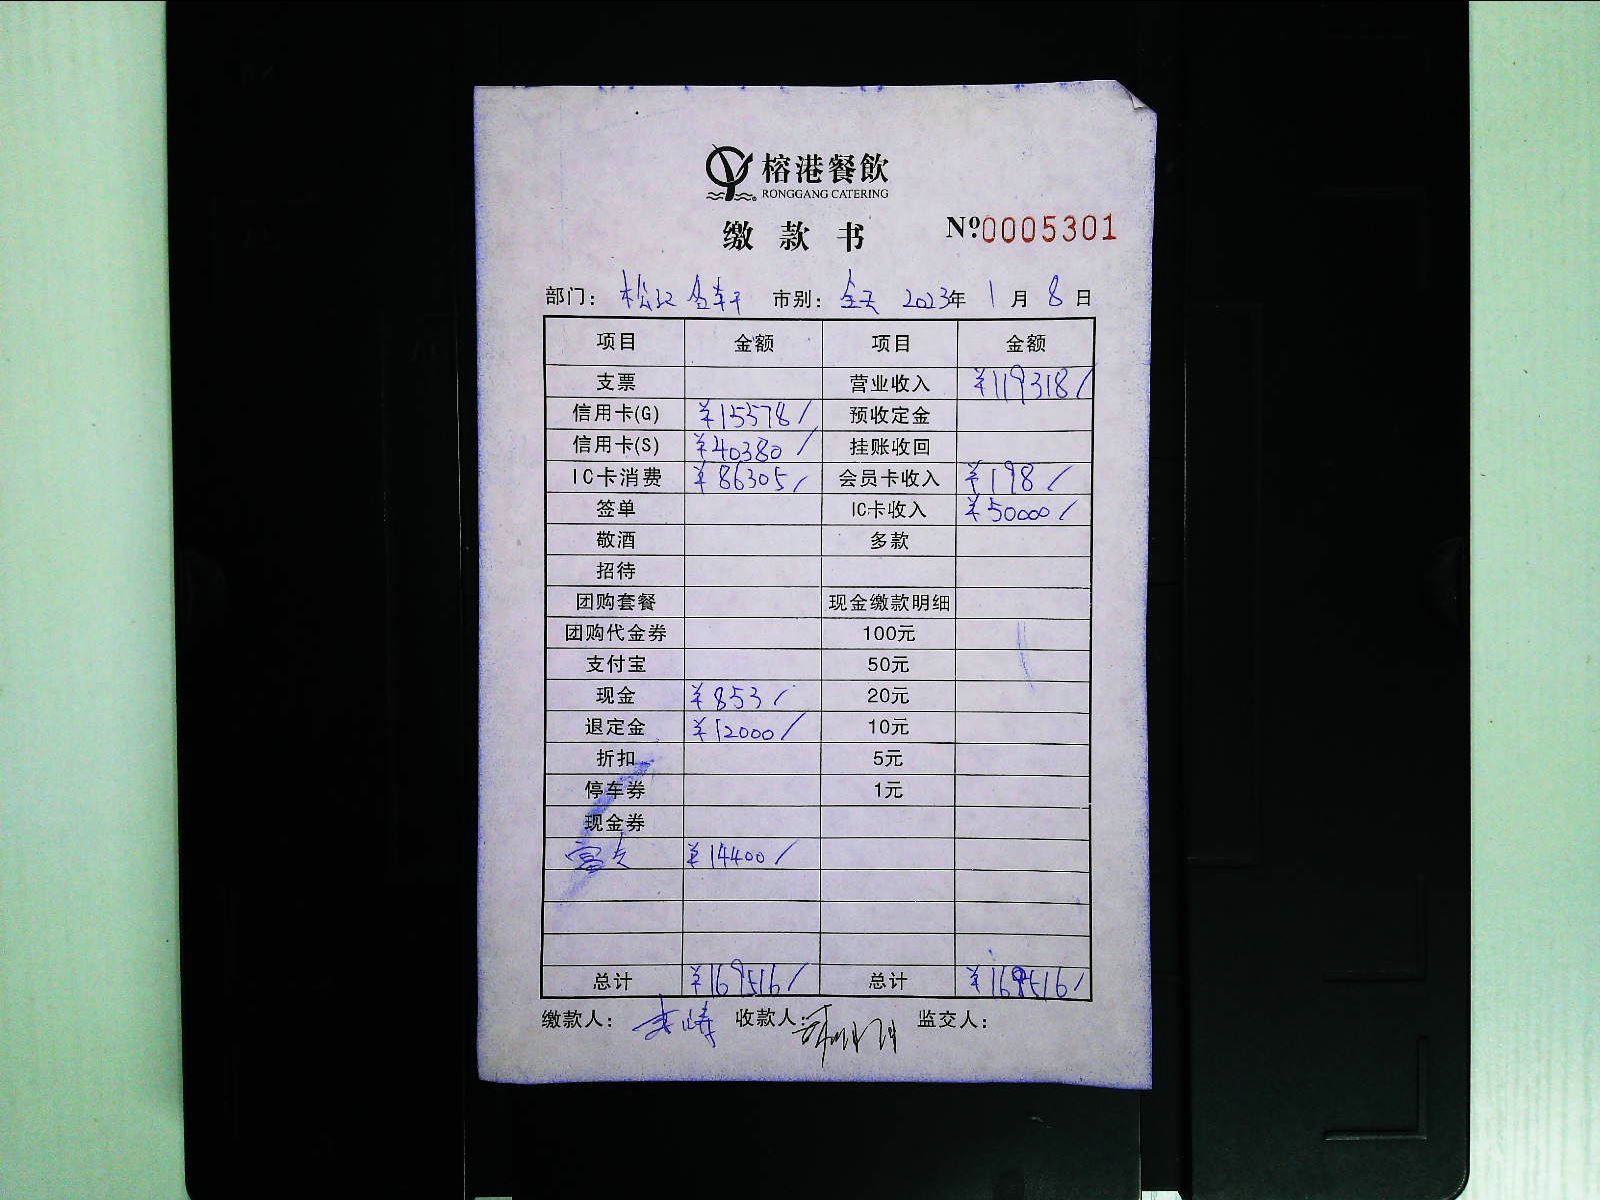 榕港餐飲
RONGGANG CATERING
缴款书 Nº0005301
部门: 松江金轩 市别: 全天 2023年 1月 8日
项目 金额 项目 金额
支票 营业收入 ¥119318/
信用卡(G) ¥15578/ 预收定金
信用卡(S) ¥40380/ 挂账收回
IC卡消费 ¥86305/ 会员卡收入 ¥198/
签单 IC卡收入 ¥50000/
敬酒 多款
招待
团购套餐 现金缴款明细
团购代金券 100元
支付宝 50元
现金 ¥853/ 20元
退定金 ¥12000/ 10元
折扣 5元
停车券 1元
现金券
富友 ¥14400/
总计 ¥169516/ 总计 ¥169516/
缴款人: 收款人: 监交人: